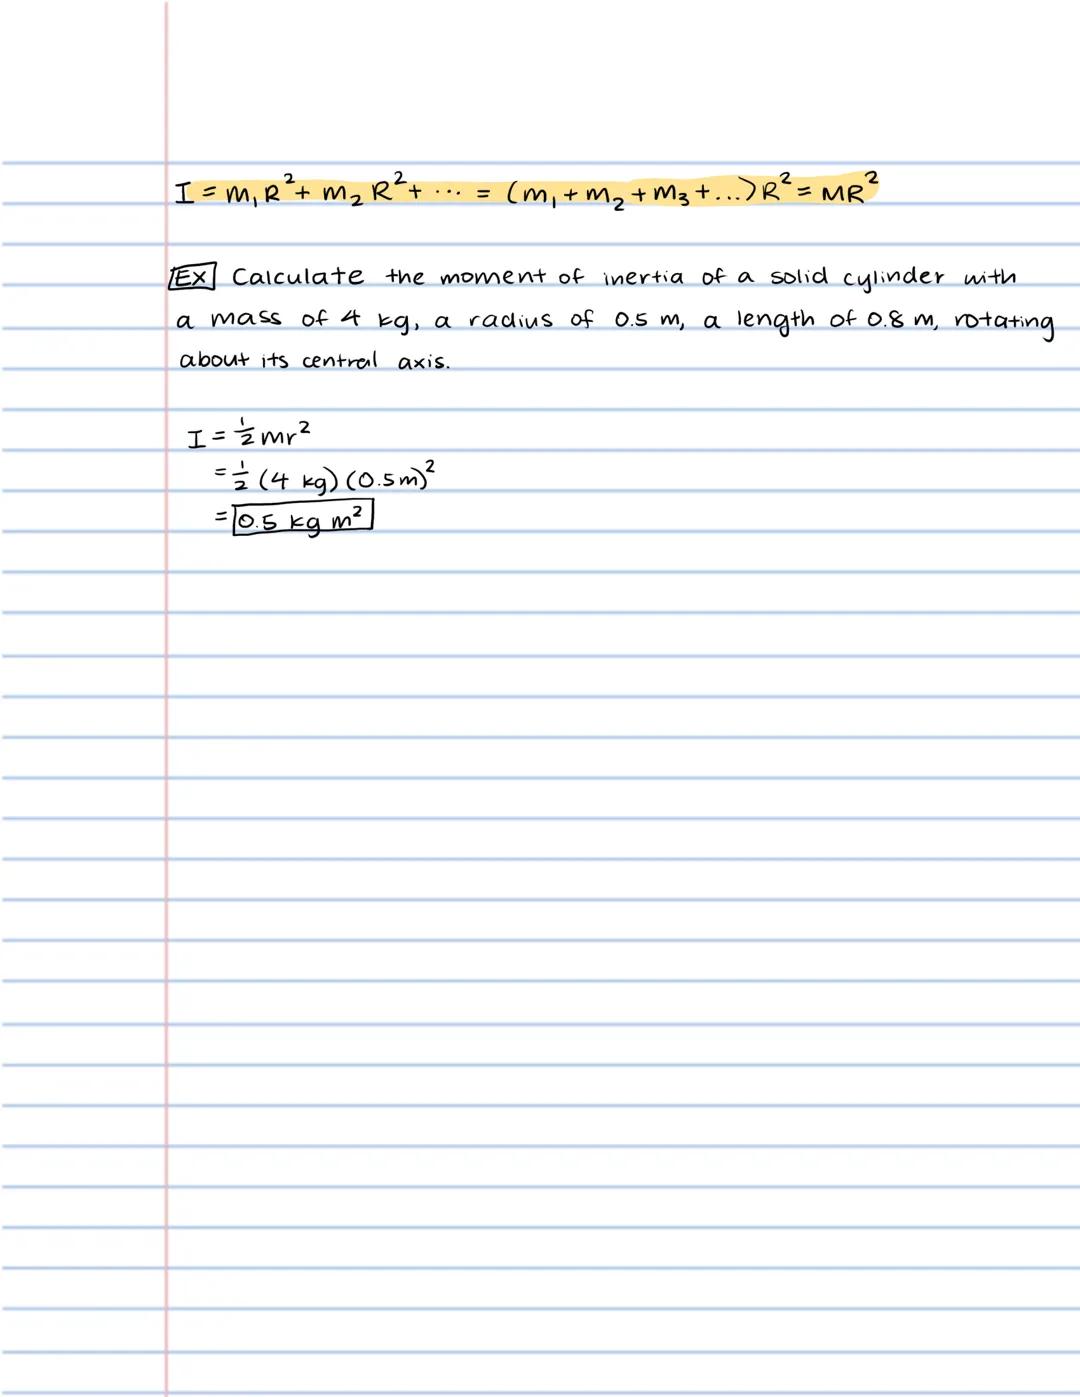 I = m₁R² + m₂R² + ... = (m₁ + m₂ + m₃ + ...)R² = MR²
Ex Calculate the moment of inertia of a solid cylinder with
a mass of 4 kg, a radius of 0.5 m, a length of 0.8 m, rotating
about its central axis.
I = ½ mr²
= ½ (4 kg) (0.5m)²
= 0.5 kg m²